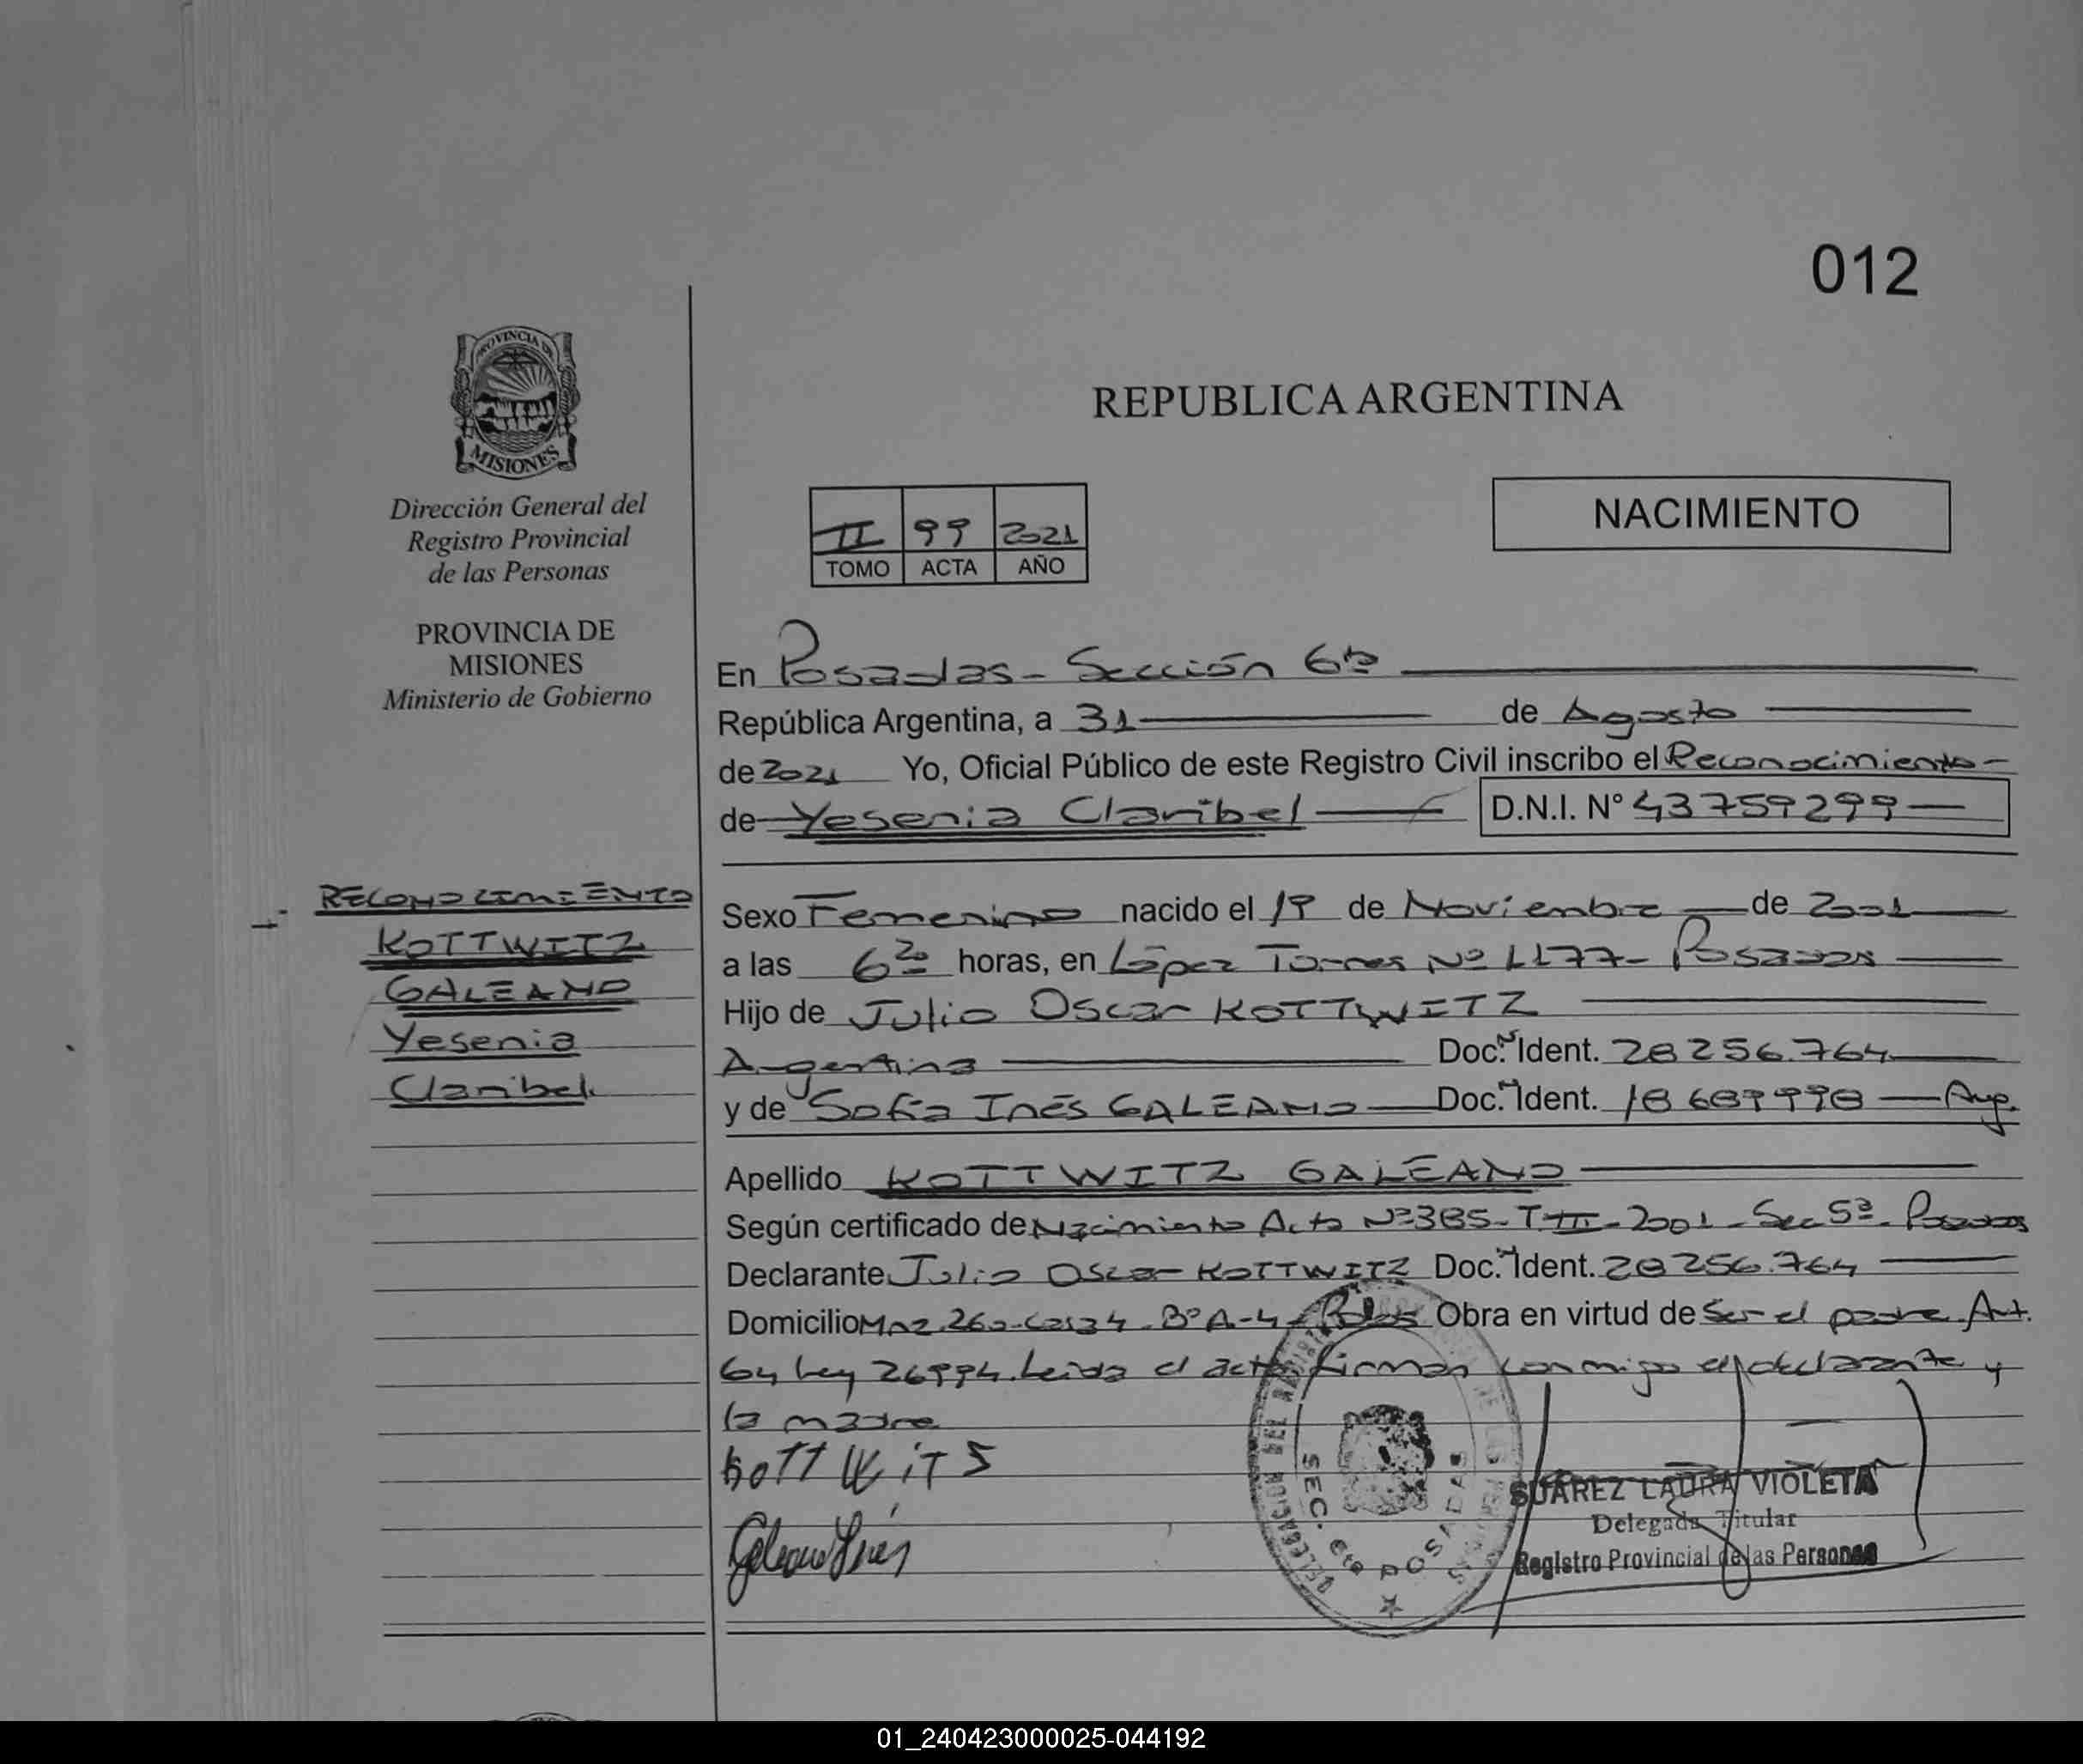 012
PROVINCIA DE
MISIONES
REPUBLICA ARGENTINA
Dirección General del
Registro Provincial
de las Personas
PROVINCIA DE
MISIONES
Ministerio de Gobierno
II 99 2021
TOMO ACTA AÑO
NACIMIENTO
En Posadas - Sección 6ta
República Argentina, a 31 de Agosto
de 2021 Yo, Oficial Público de este Registro Civil inscribo el Reconocimiento -
de Yesenia Claribel D.N.I. N° 43759299
RECONOCIMIENTO
KOTTWITZ
GALEANO
Yesenia
Claribel.
Sexo Femenino nacido el 19 de Noviembre de 2001
a las 6 20 horas, en López Torres Nº 1177 - Posadas
Hijo de Julio Oscar KOTTWITZ
Argentina Doc. Ident. 28256.764
y de Sofia Inés GALEANO Doc. Ident. 18689998 Arg.
Apellido KOTTWITZ GALEANO
Según certificado de Nacimiento Acta Nº 385 - T III - 2001 - Sec 5ª - Posadas
Declarante Julio Oscar KOTTWITZ Doc. Ident. 28256.764
Domicilio Mnz. 260 - Casa 34 - Bº A-4 - Obra en virtud de Ser el padre. Art.
64 Ley 26994. Leida el acta firman conmigo el declarante y
la madre
Kott WitS
Galeano Inés
DELEGACION DEL REGISTRO
SEC. 6ta POSADAS
SUAREZ LAURA VIOLETA
Delegada Titular
Registro Provincial de las Personas
01_240423000025-044192